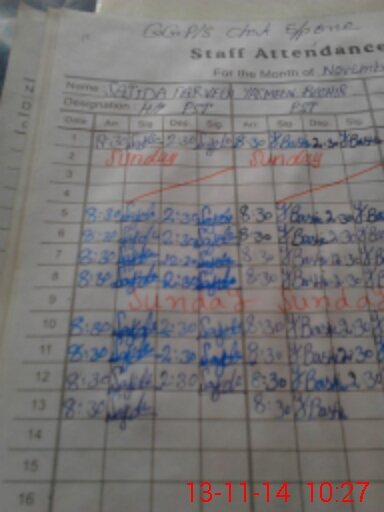 Staff Attendance
For the Month of November
Name SAJIDA PARVEEN YASMEEN BASHIR
Designation PST PST
Date Arr. Sig. Dep. Sig. Arr. Sig. Dep. Sig.
1 8:30 Sajida 2:30 Sajida 8:30 YBash 2:30 YBash
2 Sunday Sunday
3
4
5 8:30 Sajida 2:30 Sajida 8:30 YBash 2:30 YBash
6 8:30 Sajida 2:30 Sajida 8:30 YBash 2:30 YBash
7 8:30 Sajida 2:30 Sajida 8:30 YBash 2:30 YBash
8 8:30 Sajida 2:30 Sajida 8:30 YBash 2:30 YBash
9 Sunday Sunday
10 8:30 Sajida 2:30 Sajida 8:30 YBash 2:30 YBash
11 8:30 Sajida 2:30 Sajida 8:30 YBash 2:30 YBash
12 8:30 Sajida 2:30 Sajida 8:30 YBash 2:30
13 8:30 Sajida 8:30 YBash
14
15
16
13-11-14 10:27